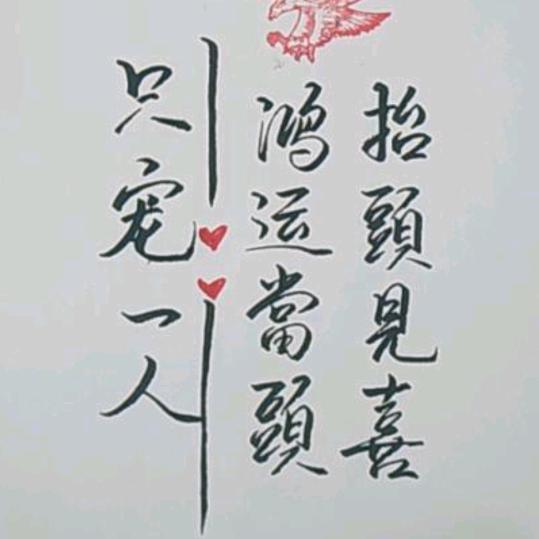 抬頭見喜
鸿运當頭
只宠一人